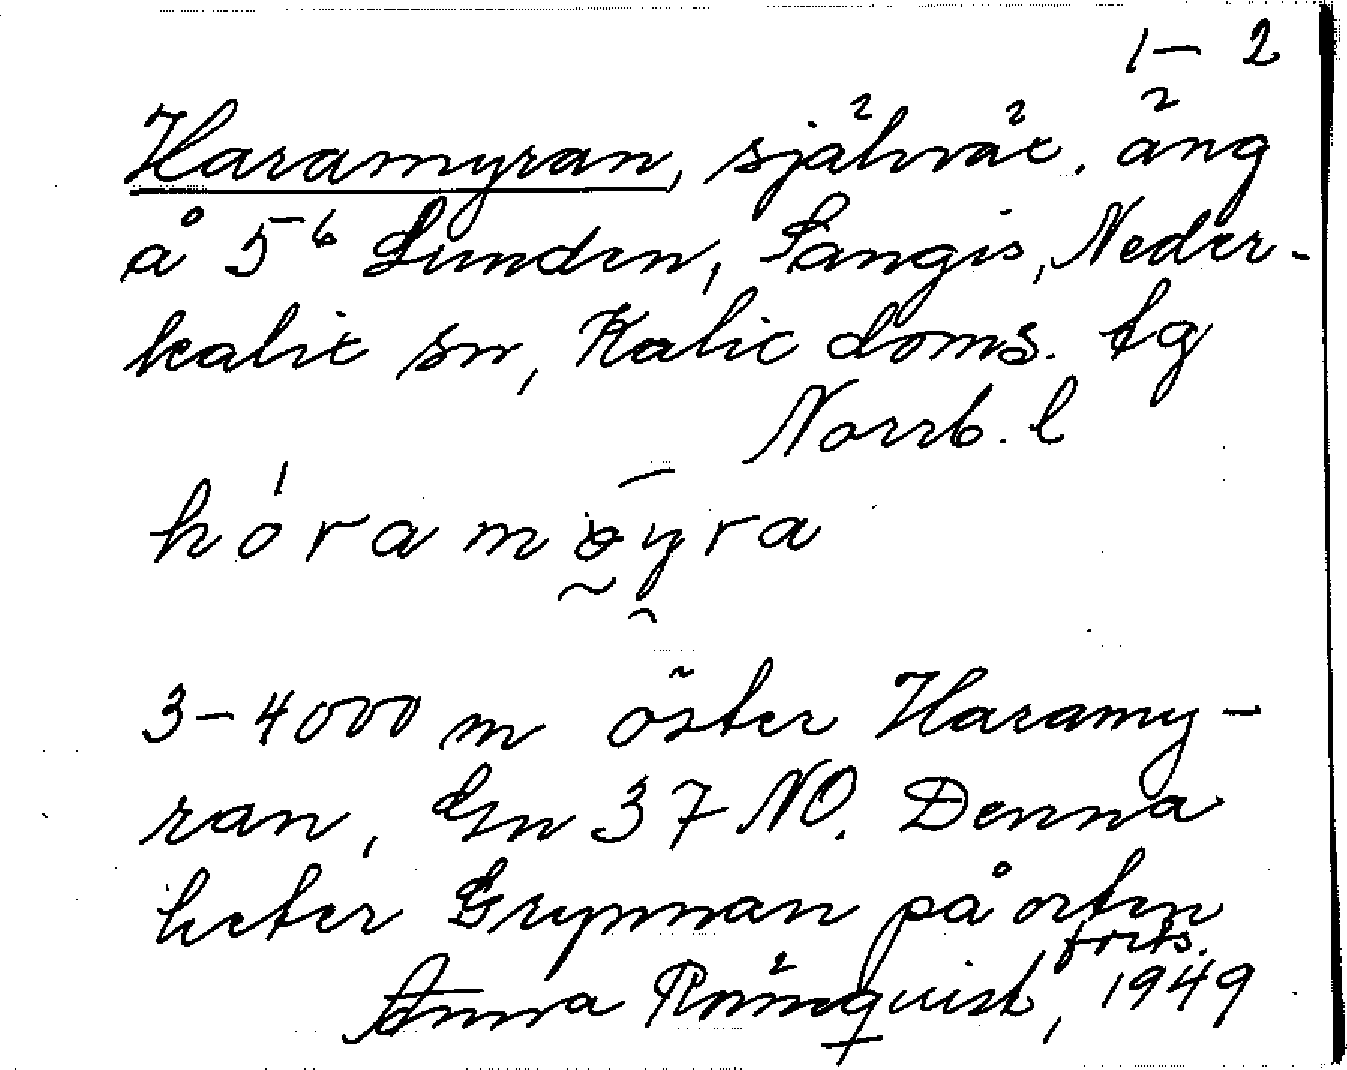 1–2
Haramyran, självät. äng
å 5⁶ Lunden, Sangis, Neder-
kalix sn, Kalix doms. tg
Norrb. l
hóramøyra
3–4000 m öster Haramy-
ran, Gn 37 NO. Denna
heter Grynnan på orten
forts.
Anna Rönnquist, 1949